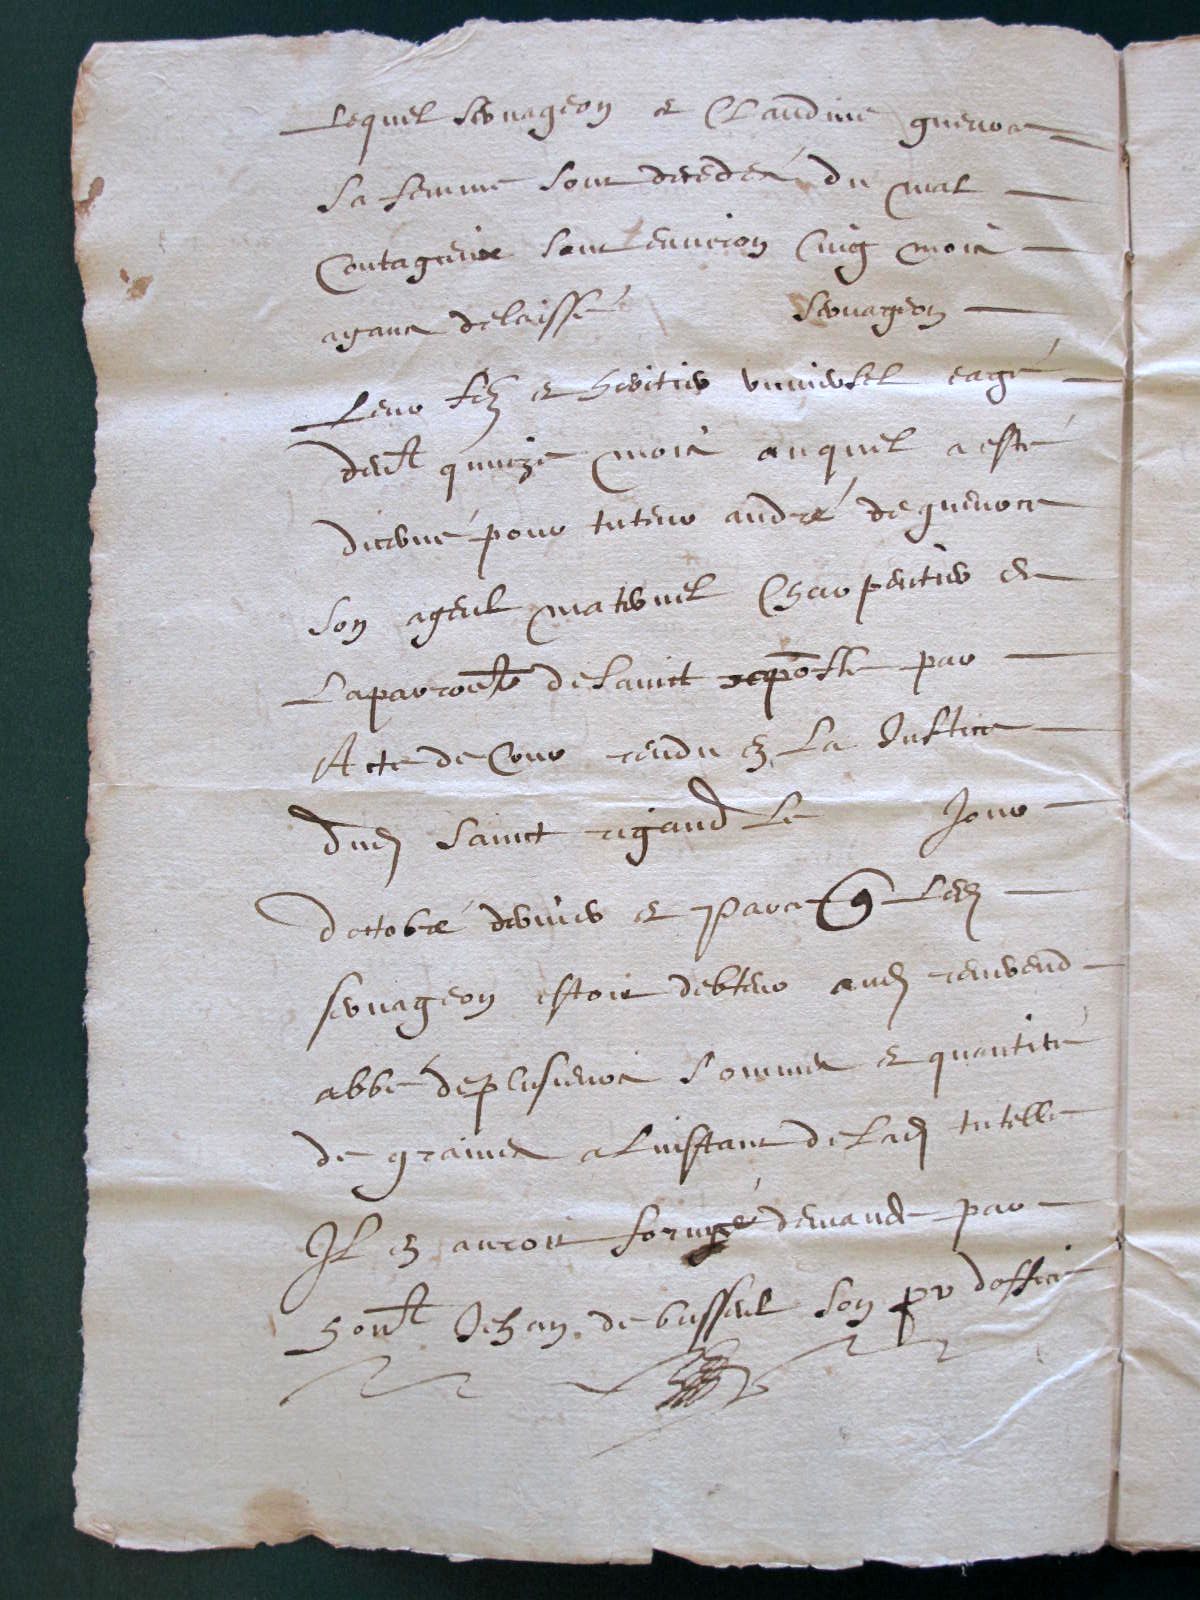 Lequel Sernageon et Claudine guenot
sa femme sont decedés du mal
contagieux sont environ cinq mois
ayant delaissé Sernageon
leur filz et heritier universel eagé
dent quinze mois auquel a esté
decerné pour tuteur andré de guenot
son ayeul maternel charpentier en
la parroe de sainct par
Acte de Cour rendu en la Justice
dud sainct rigaud le jour
doctobre dernier et parce q led
sernageon estoit debteur aud reverend
abbé de plusieurs sommes et quantité
de graines a linstant de lad tutelle
Il en auroit formé demande par
hont Jehan de busseul son pr doffice